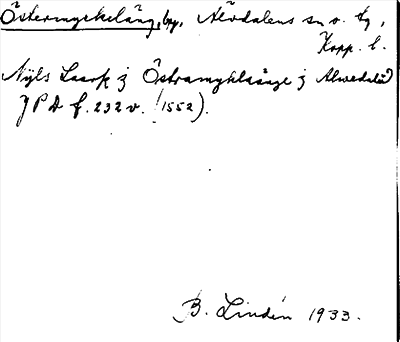 Östermyckeläng, by, Älvdalens sn o. tg,
Kopp. l.
Nyls Lasok j Östramyklänge j Alwedalå
J P D f. 232 v. (1552).
B. Lindén 1933.